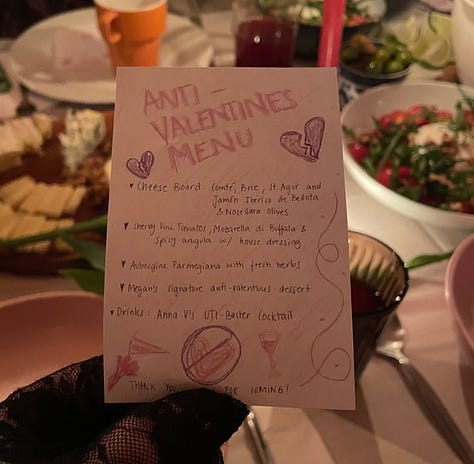 ANTI-
VALENTINES
MENU
♥ Cheese Board: Comté, Brie, St Agur and
Jamón Ibérico de Bellota
& Nocellara Olives
♥ Cherry Vine Tomatos, Mozarella di Buffala &
spicy arugula w/ house dressing
♥ Aubergine Parmegiana with fresh herbs
♥ Megan's signature anti-valentines dessert
♥ Drinks: Anna V's UTI-Buster Cocktail
THANK YOU FOR COMING!